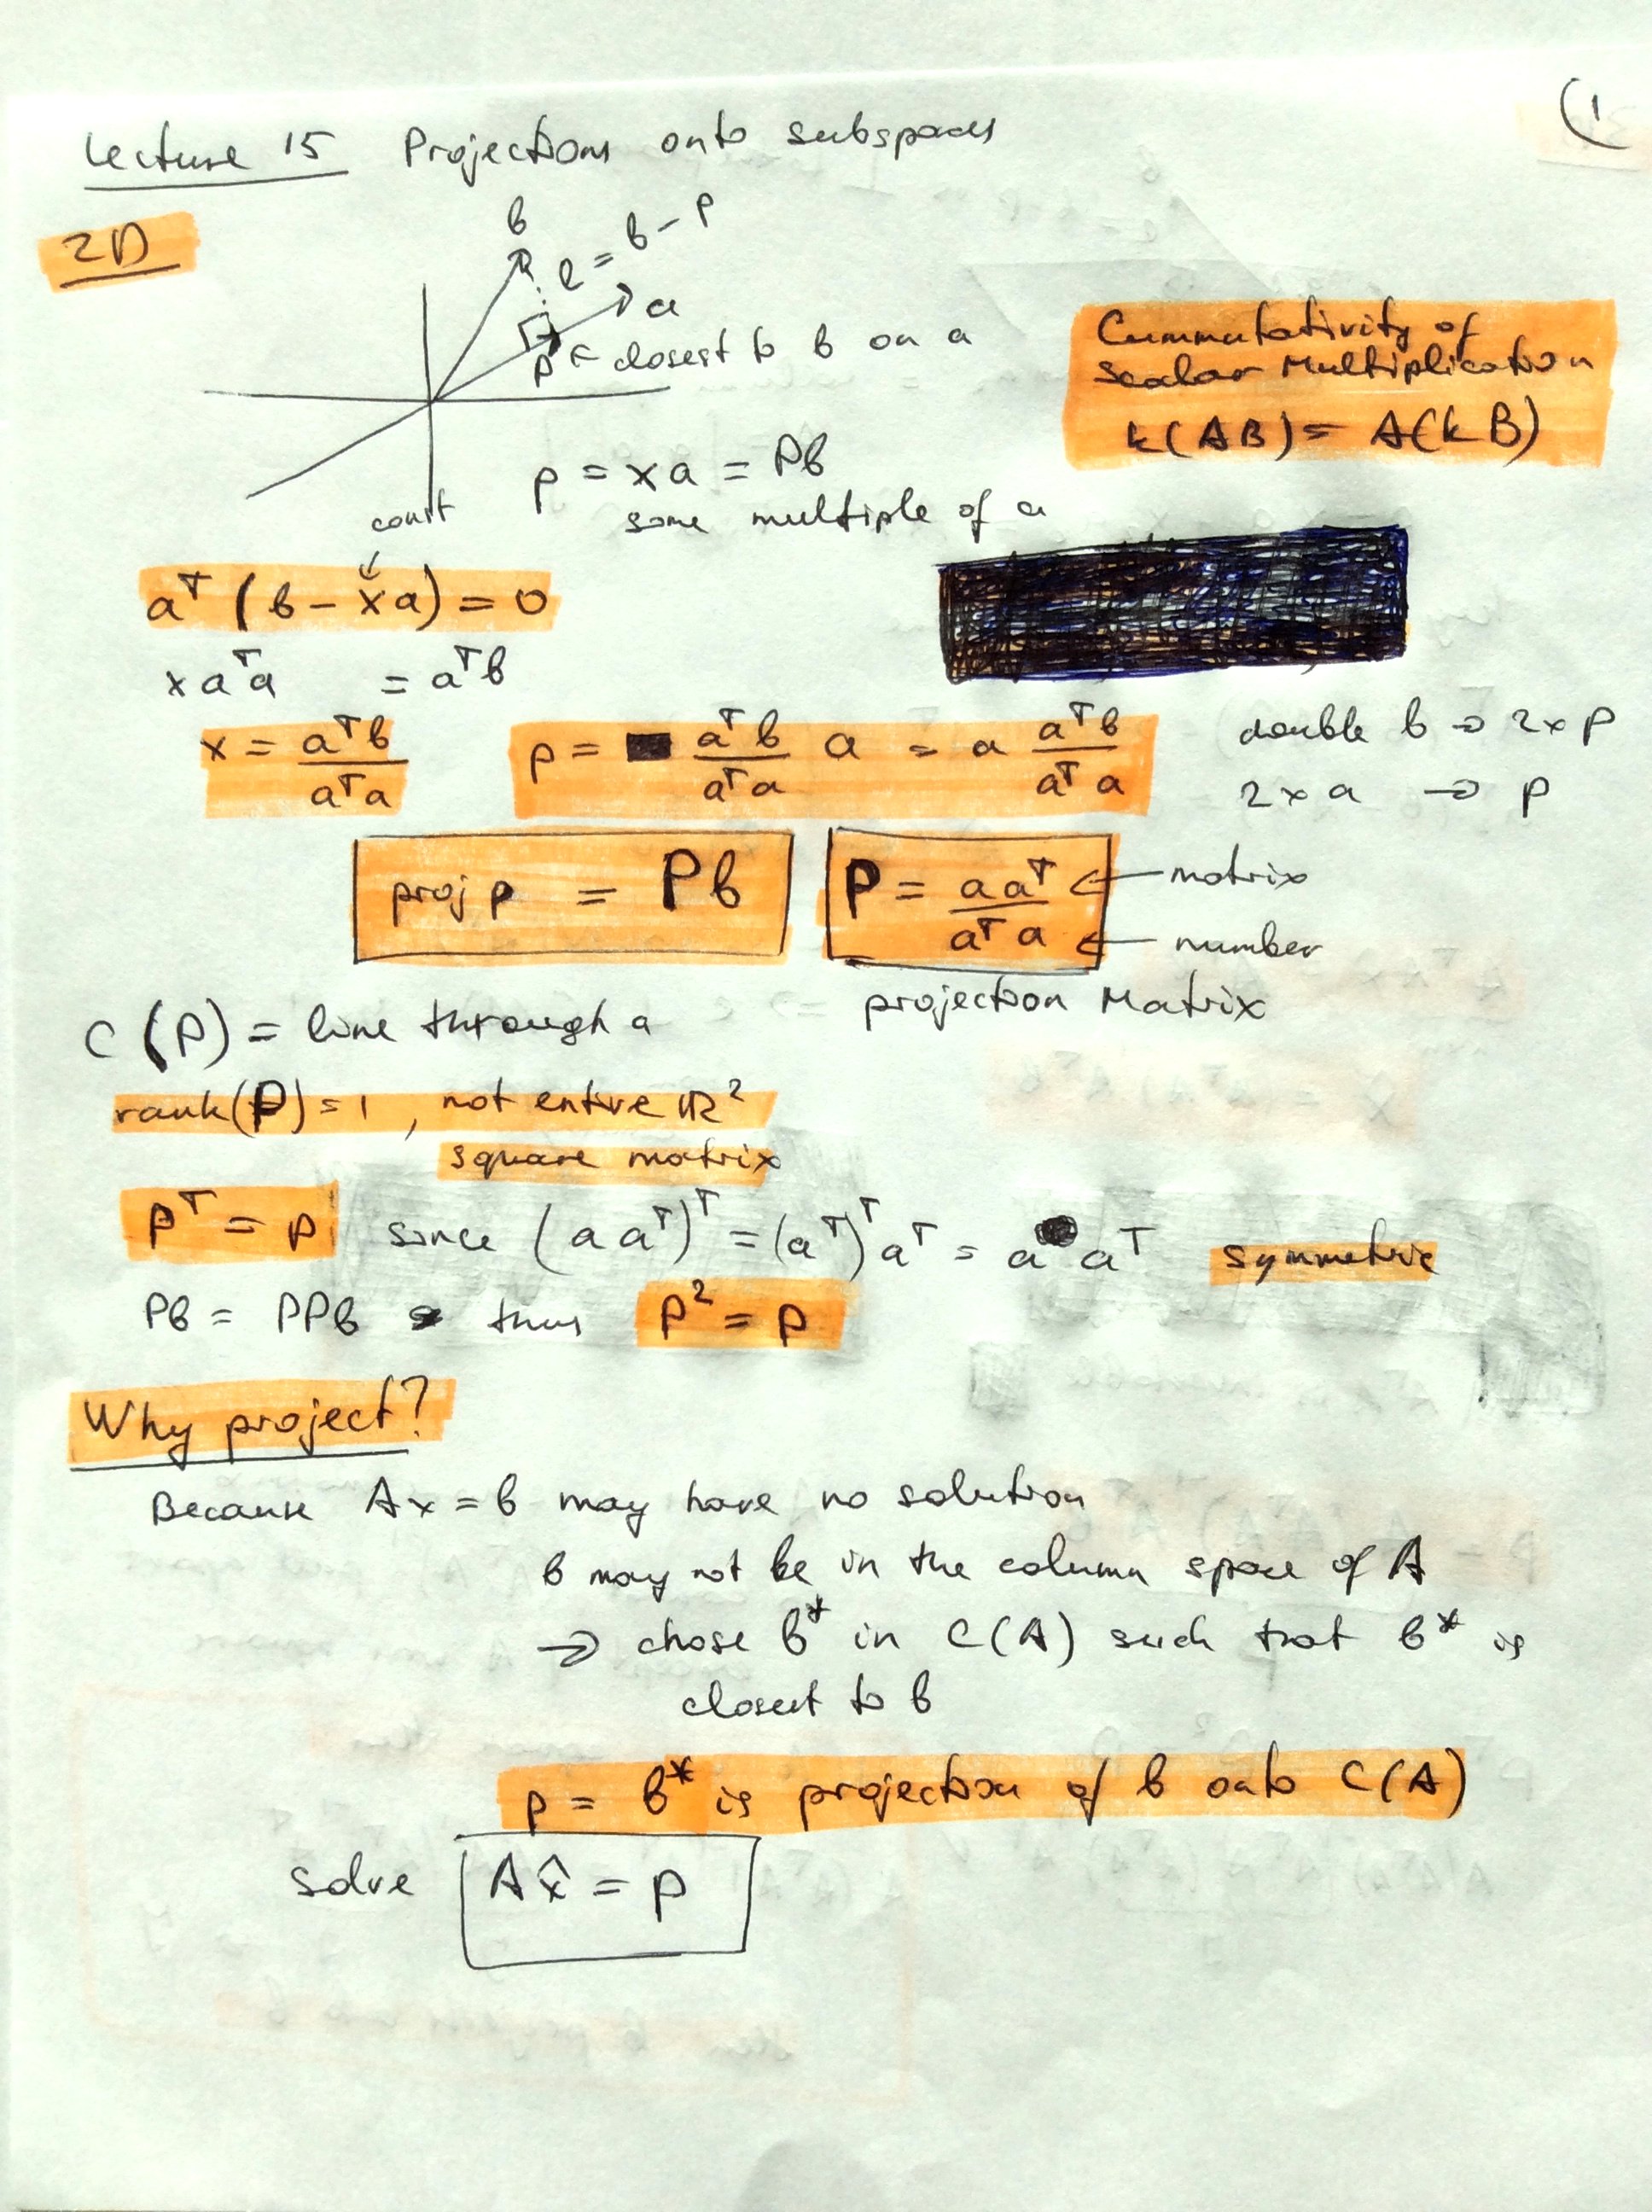 (1
Lecture 15 Projections onto subspaces
2D
b
e = b - p
a
p ← closest to b on a
Cummutativity of
Scalar Multiplication
k(AB) = A(kB)
p = xa = Pb
some multiple of a
const
↓
aᵀ(b - xa) = 0
x aᵀa = aᵀb
x = aᵀb / aᵀa p = aᵀb / aᵀa a = a aᵀb / aᵀa
double b → 2x p
2x a → p
proj p = Pb
P = aaᵀ / aᵀa
← matrix
← number
projection Matrix
C(P) = line through a
rank(P) = 1, not entire ℝ²
square matrix
Pᵀ = P since (aaᵀ)ᵀ = (aᵀ)ᵀaᵀ = a aᵀ symmetric
Pb = PPb thus P² = P
Why project?
Because Ax = b may have no solution
b may not be in the column space of A
→ chose b* in C(A) such that b* is
closest to b
p = b* is projection of b onto C(A)
solve Ax̂ = p